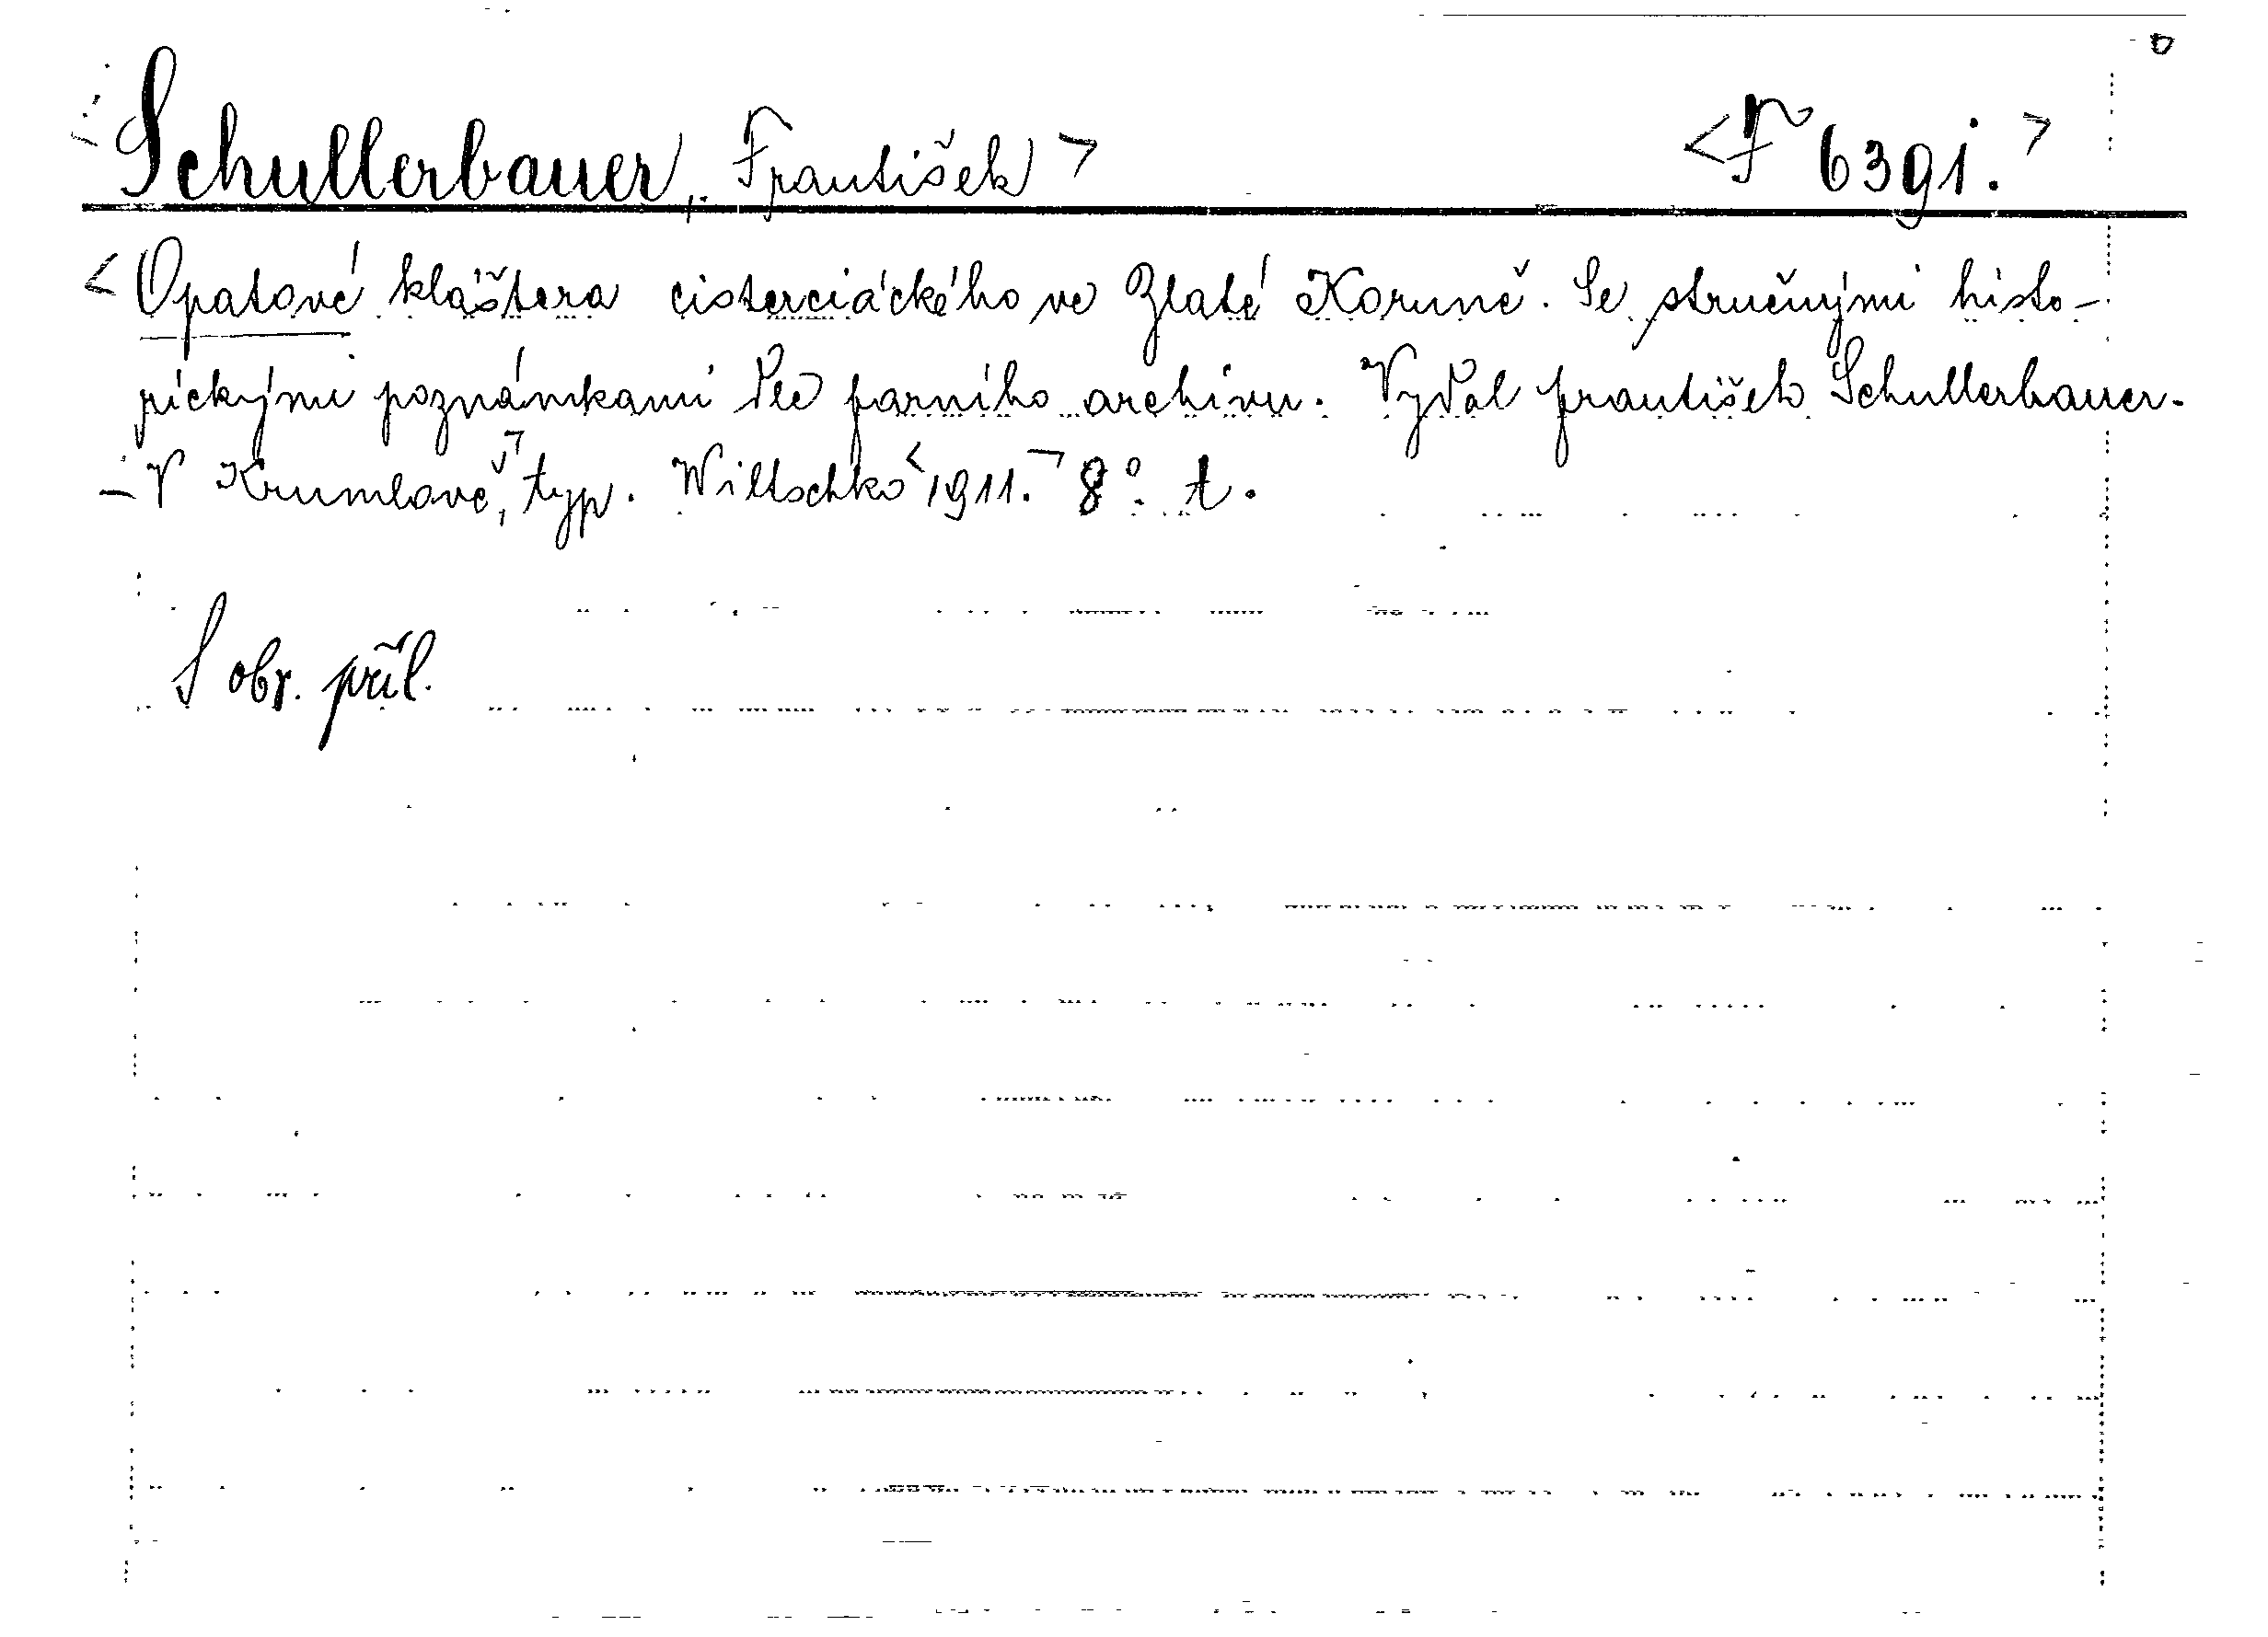 Schullerbauer, František > <F 6391.>
<Opatové kláštera cisterciáckého ve Zlaté Koruně. Se stručnými histo-
rickými poznámkami dle farního archivu. Vydal František Schullerbauer.
– V Krumlově, typ. Wiltschko <1911.> 8°. t.
S obr. příl.